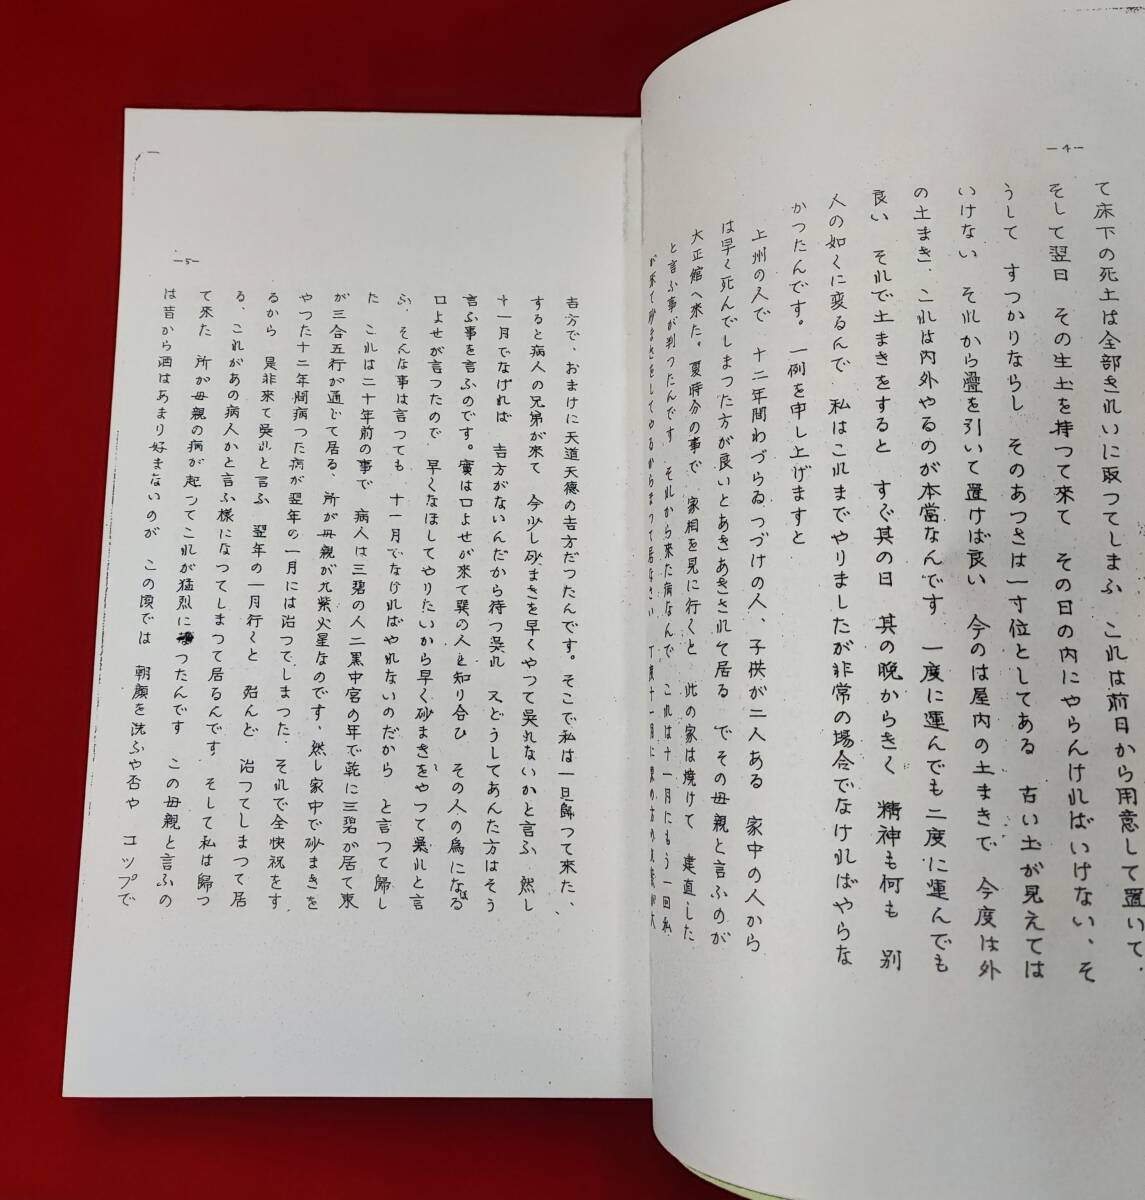 －4－
て床下の死土は全部きれいに取つてしまふ これは前日から用意して置いて、
そして翌日 その生土を持つて来て その日の内にやらんければいけない、そ
うして すつかりならし そのあつさは一寸位としてある 古い土が見えては
いけない それから疊を引いて置けば良い 今のは屋内の土まきで 今度は外
の土まき、これは内外やるのが本當なんです 一度に運んでも二度に運んでも
良い それで土まきをすると すぐ其の日 其の晩からきく 精神も何も 別
人の如くに変るんで 私はこれまでやりましたが非常の場合でなければやらな
かつたんです。一例を申し上げますと
上州の人で 十二年間わづらゐつづけの人、子供が二人ある 家中の人から
は早く死んでしまつた方が良いとあきあきされて居る でその母親と言ふのが
大正館へ来た。夏時分の事で 家相を見に行くと 此の家は焼けて 建直した
と言ふ事が判つたんです それから来た病なんで これは十一月にもう一回私
が来て砂まきをしてやるからまつて居なさい
－5－
吉方で、おまけに天道天德の吉方だつたんです。そこで私は一旦歸つて来た、
すると病人の兄弟が来て 今少し砂まきを早くやつて吳れないかと言ふ 然し
十一月でなければ 吉方がないんだから待つ吳れ 又どうしてあんた方はそう
言ふ事を言ふのです。實は口よせが来て巽の人と知り合ひ その人の爲になる
口よせが言つたので 早くなほしてやりたいから早く砂まきをやつて吳れと言
ふ、そんな事は言つても 十一月でなければやれないのだから と言つて歸し
た これは二十年前の事で 病人は三碧の人二黒中宮の年で乾に三碧が居て東
が三合五行が通じて居る、所が母親が九紫火星なのです、然し家中で砂まきを
やつた十二年間病つた病が翌年の一月には治つてしまつた、それで全快祝をす
るから 是非来て吳れと言ふ 翌年の一月行くと 殆んど 治つてしまつて居
る、これがあの病人かと言ふ様になつてしまつて居るんです そして私は歸つ
て來た 所が母親の病が起つてこれが猛烈に つたんです この母親と言ふの
は昔から酒はあまり好まないのが この頃では 朝顔を洗ふや否や コップで